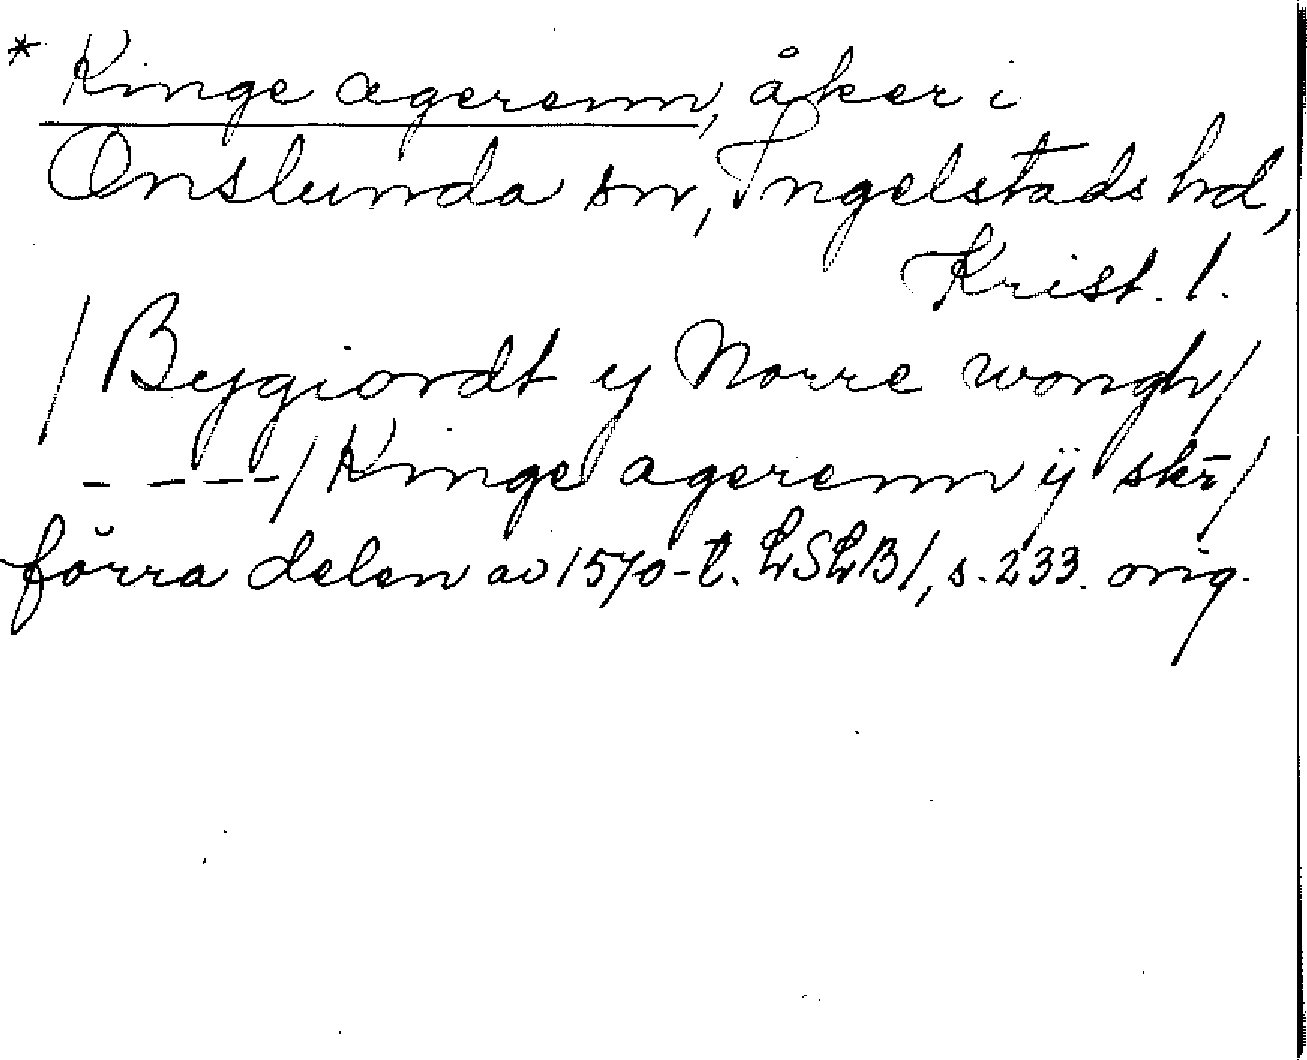 * Kinge agerenn, åker i
Onslunda sn, Ingelstads hd,
Krist. l.
/ Bygiordt y Norre wongh /
- - - - / Kinge agerenn ij skr̄ /
förra delen av 1570-t. LSLB /, s. 233. orig.